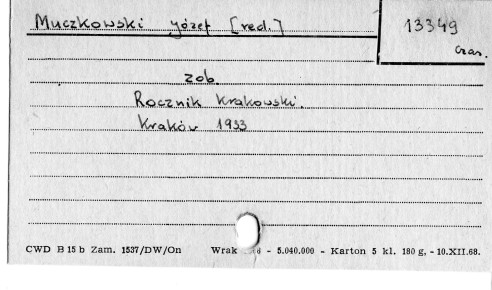 Muczkowski Józef [red.]
13349
Czas.
zob.
Rocznik Krakowski.
Kraków 1933
CWD B 15 b Zam. 1537/DW/On Wrak - 5.040.000 - Karton 5 kl. 180 g. - 10.XII.68.